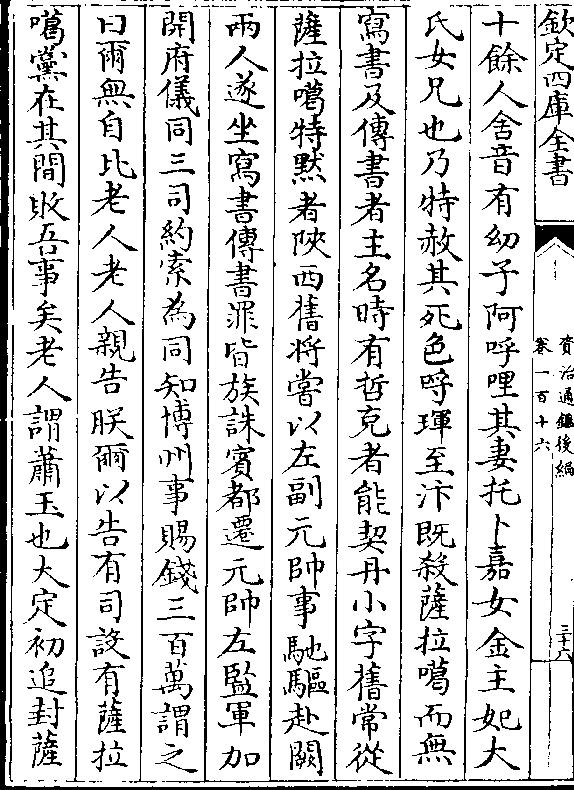 欽定四庫全書
資治通鑑後編
卷一百十六
三十六
十餘人舍音有幼子阿哷哩其妻托卜嘉女金主妃大
氏女兄也乃特赦其死色哷琿至汴既殺薩拉噶而無
寫書及傳書者主名時有哲克者能契丹小字舊常從
薩拉噶特默者陜西舊將嘗以左副元帥事馳驅赴闕
兩人遂坐寫書傳書罪皆族誅賓都遷元帥左監軍加
開府儀同三司約索為同知博州事賜錢三百萬謂之
曰爾無自比老人老人親告朕爾以告有司設有薩拉
噶黨在其間敗吾事矣老人謂蕭玉也大定初追封薩